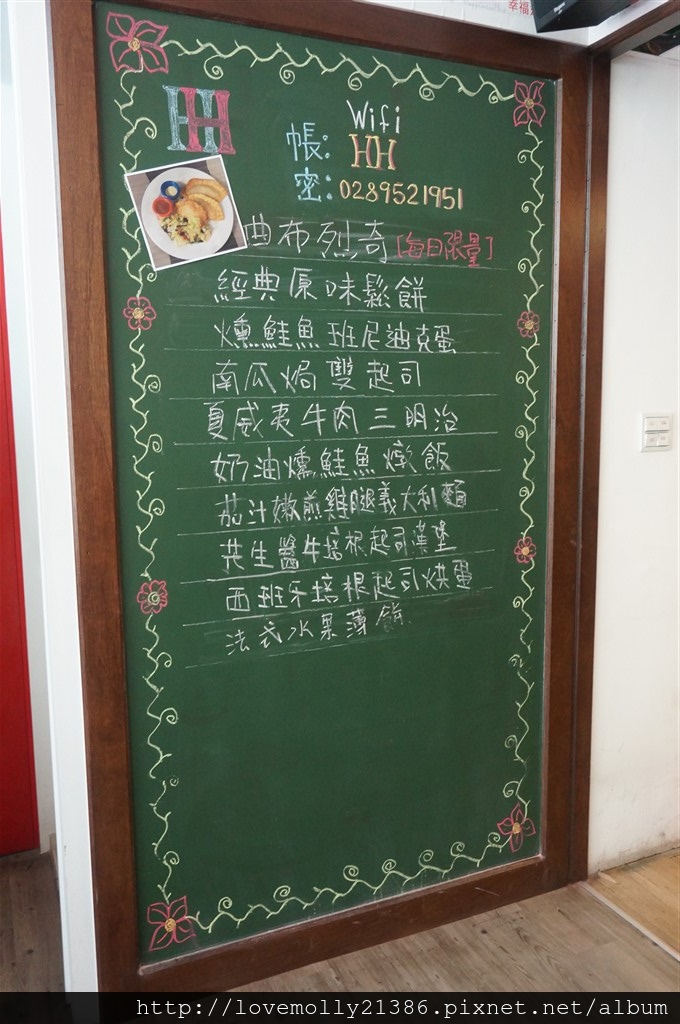 幸福
HH
Wifi
帳: HH
密: 0289521951
曲布烈奇 [每日限量]
經典原味鬆餅
燻鮭魚班尼迪克蛋
南瓜焗雙起司
夏威夷牛肉三明治
奶油燻鮭魚燉飯
茄汁嫩煎雞腿義大利麵
花生醬牛培根起司漢堡
西班牙培根起司烘蛋
法式水果薄餅
http://lovemolly21386.pixnet.net/album